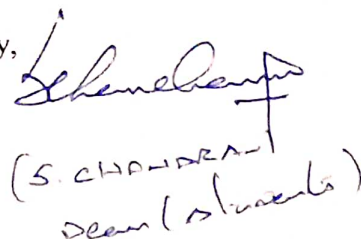 y,
(S. CHANDRAN)
Dean (Students)